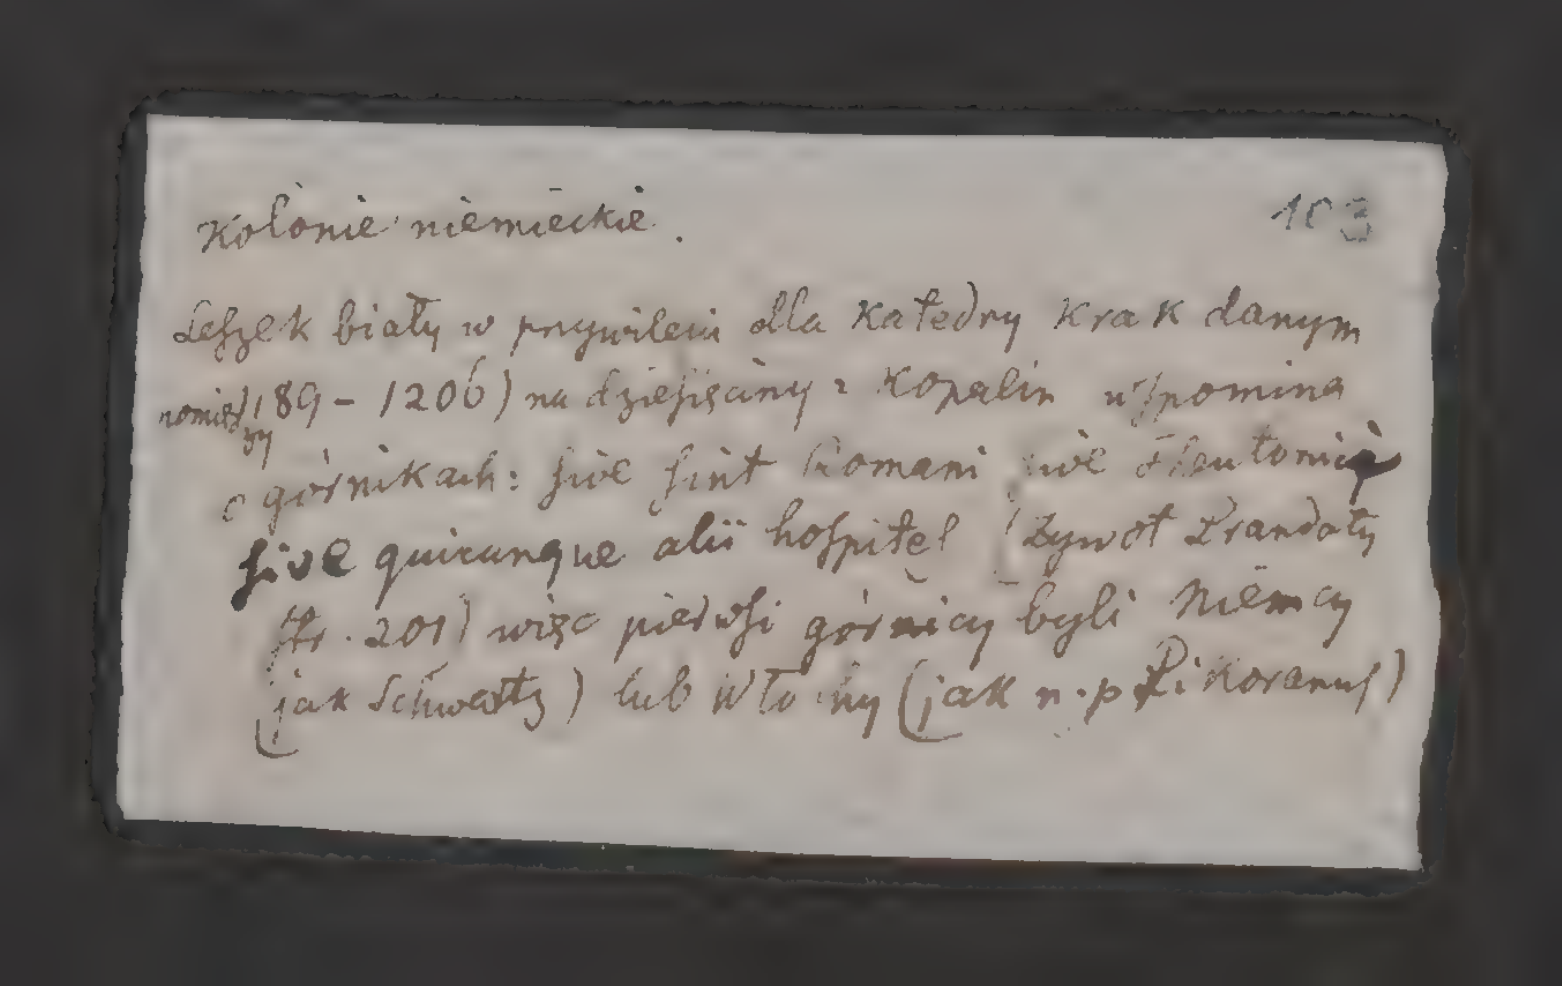 Kolonie niemieckie. 103
Leszek biały w przywileiu dla Katedry Krak danym
pomiędzy 1189 - 1206) na dziesięciny z Kopalin wspomina
o górnikach: sive sint Romani sive Theutonici
sive quicunque alii hospites (Żywot Prandoty
str. 201) więc pierwsi górnicy byli Niemcy
(jak Schwartz) lub Włochy (jak n. p